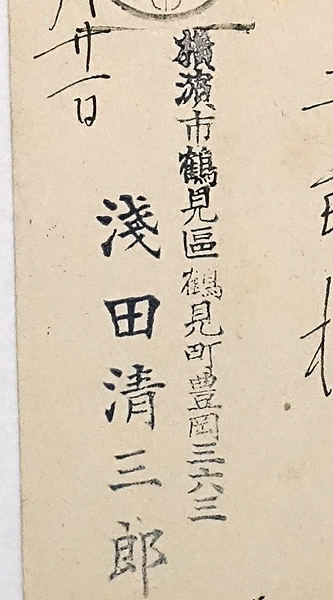 橫濱市鶴見區鶴見町豊岡三六三
淺田清三郎
月廿一日